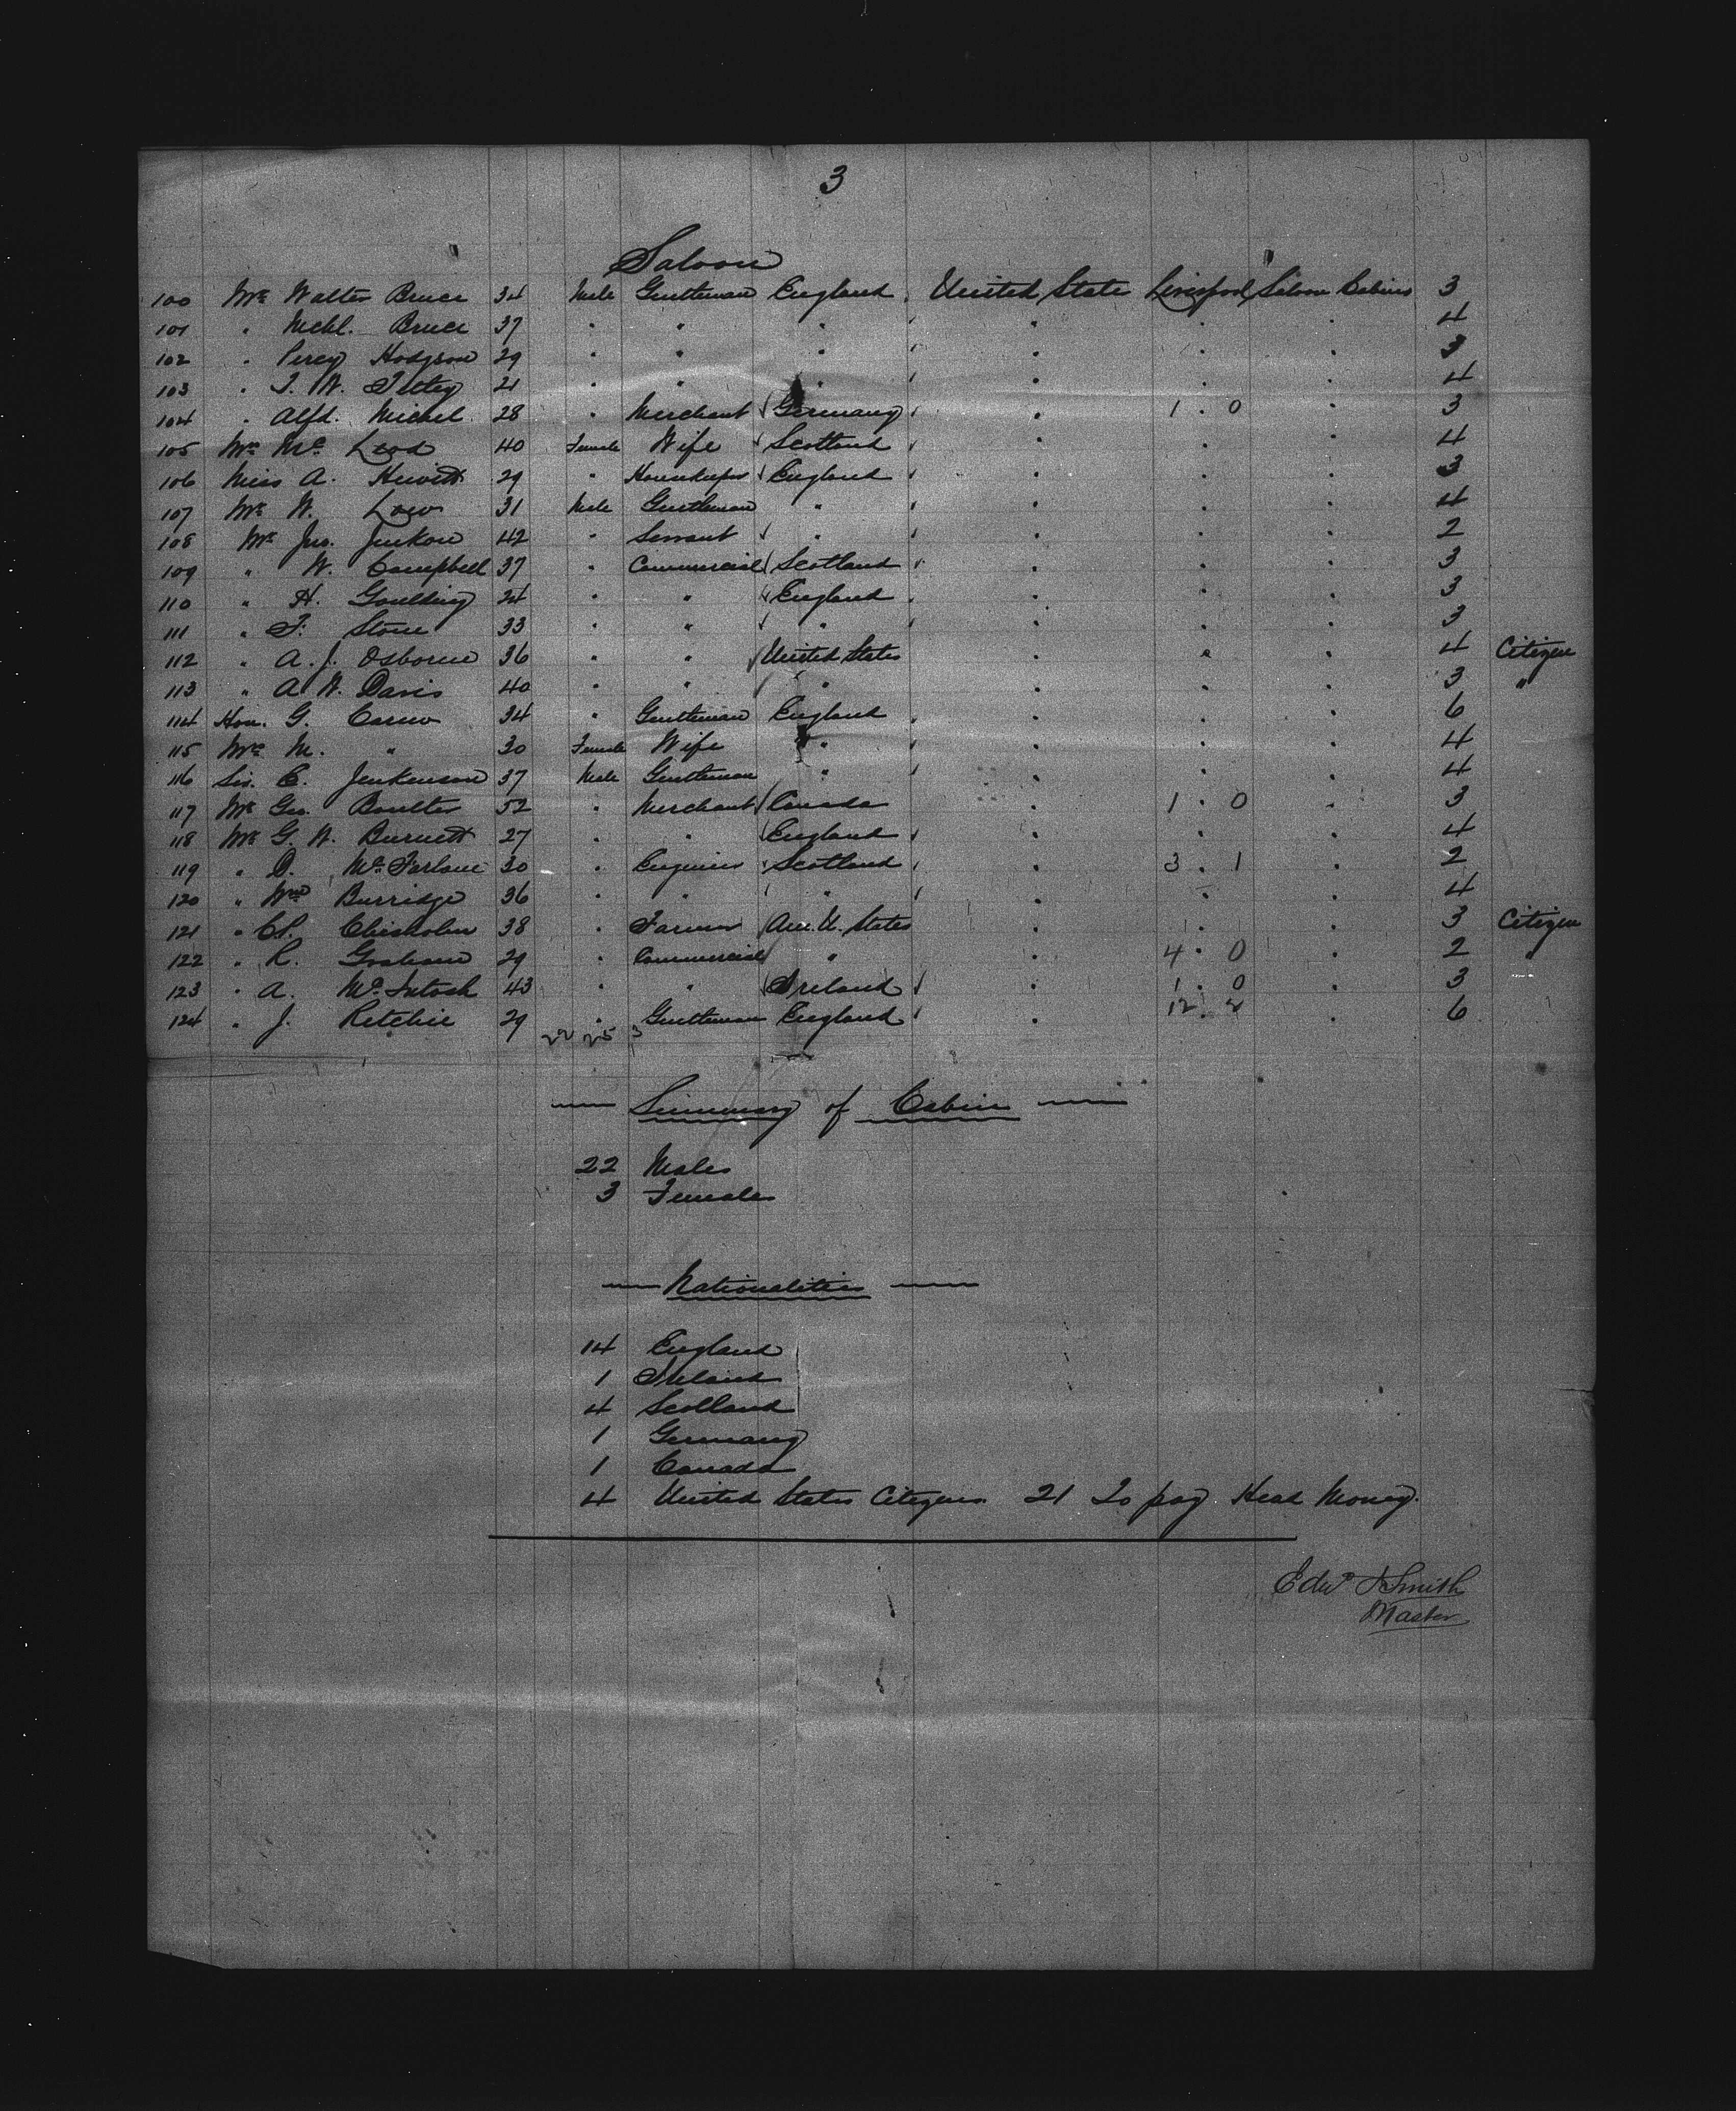 3
Saloon
100 Mr. Walter Bruce 34 Male Gentleman England United State Liverpool Saloon Cabins 3
101 " Michl. Bruce 37 " " " " " " 4
102 " Percy Hodgson 29 " " " " " " 3
103 " T. W. 21 " " " " " " 4
104 " Alfd. Michel 28 " Merchant Germany " 1 . 0 " 3
105 Mrs. Mc. Leod 40 Female Wife Scotland " " " 4
106 Miss A. Hewett 29 " Housekeeper England " " " 3
107 Mr. W. Low 31 Male Gentleman " " " " 4
108 Mr. Jno. 42 " Servant " " " " 2
109 " W. Campbell 37 " Commercial Scotland " " " 3
110 " H. Goulding 24 " " England " " " 3
111 " F. Stone 33 " " " " " " 3
112 " A. J. Osborne 36 " " United States " " " 4 Citizen
113 " A. W. Davis 40 " " " " " " 3 "
114 Hon. G. Carew 34 " Gentleman England " " " 6
115 Mrs. M. " 30 Female Wife " " " " 4
116 Sir. E. Jenkinson 37 Male Gentleman " " " " 4
117 Mr. Geo. Boulter 52 " Merchant Canada " 1 . 0 " 3
118 Mr. G. W. Burnett 27 " " England " " " 4
119 " D. Mc. Farlane 30 " Engineer Scotland " 3 . 1 " 2
120 " Wm. Burridge 36 " " " " " " 4
121 " Chisholm 38 " Farmer Am. U. States " " " 3 Citizen
122 " R. Graham 29 " Commercial " " 4 . 0 " 2 "
123 " A. Mc. Intosh 43 " " Ireland " 1 . 0 " 3
124 " J. Ritchie 29 " Gentleman England " 12 . 2 " 6
22 25 3
Summary of Cabin
22 Males
3 Females
Nationalities
14 England
1 Ireland
4 Scotland
1 Germany
1 Canada
4 United States Citizens 21 To pay Head Money.
Edwd J Smith
Master